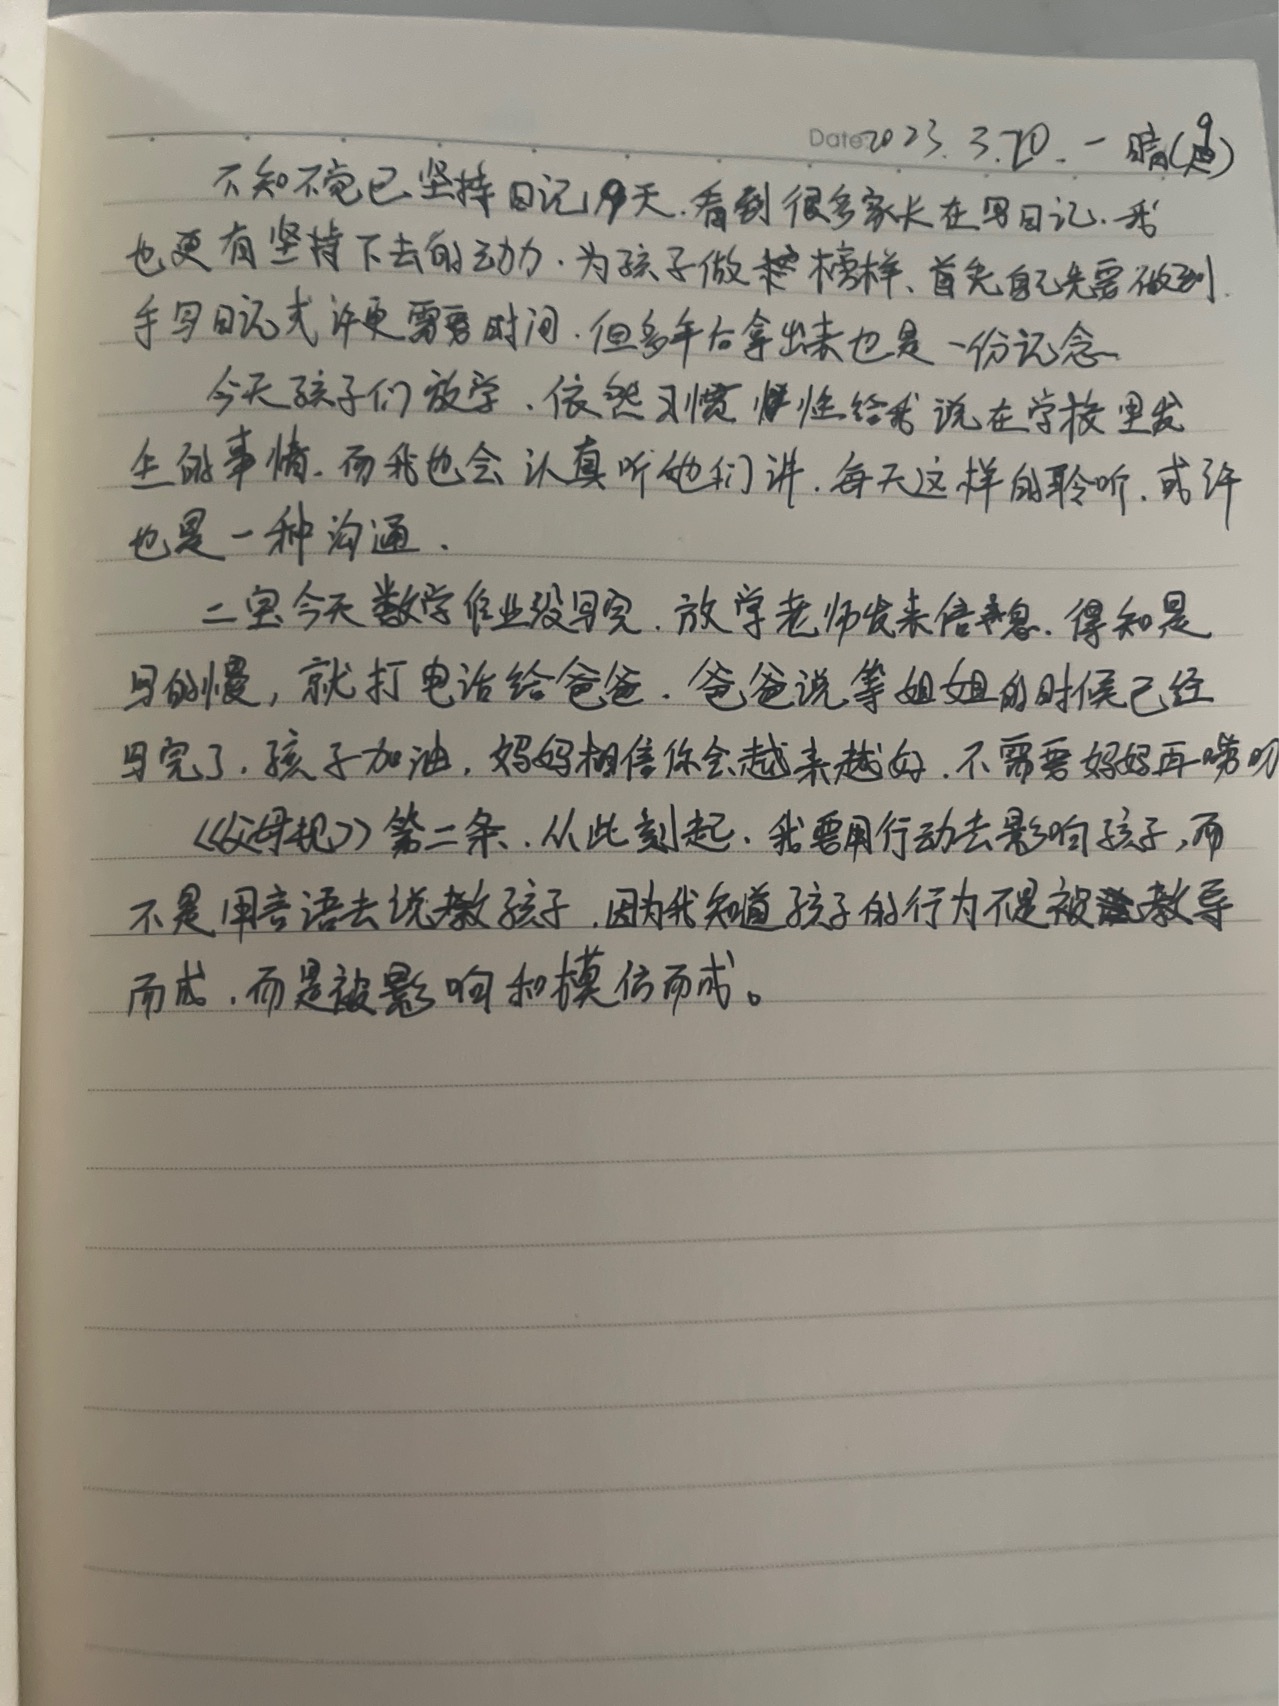 Date 2023.3.20.一晴(9)
不知不觉已坚持日记9天.看到很多家长在写日记.我
也更有坚持下去的动力.为孩子做榜样、首先自己先要做到.
手写日记或许更需要时间.但多年后拿出来也是一份记念
今天孩子们放学.依然习惯性给我说在学校里发
生的事情.而我也会认真听他们讲.每天这样的聆听.或许
也是一种沟通.
二宝今天数学作业没写完.放学老师发来信息.得知是
写的慢,就打电话给爸爸.爸爸说等姐姐的时候已经
写完了.孩子加油,妈妈相信你会越来越好.不需要妈妈再唠叨
《父母规》第二条.从此刻起.我要用行动去影响孩子,而
不是用言语去说教孩子.因为我知道孩子的行为不是被教导
而成.而是被影响和模仿而成。